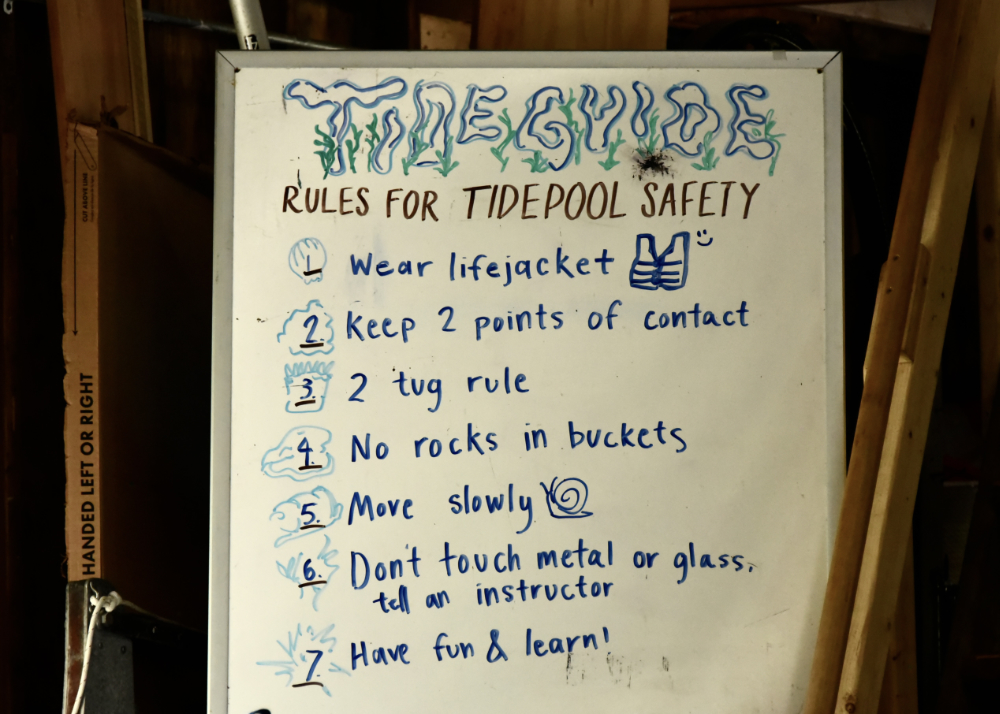 TIDE GUIDE
RULES FOR TIDEPOOL SAFETY
1. Wear lifejacket
2. Keep 2 points of contact
3. 2 tug rule
4. No rocks in buckets
5. Move slowly
6. Don't touch metal or glass,
tell an instructor
7. Have fun & learn!
HANDED LEFT OR RIGHT
CUT ABOVE LINE